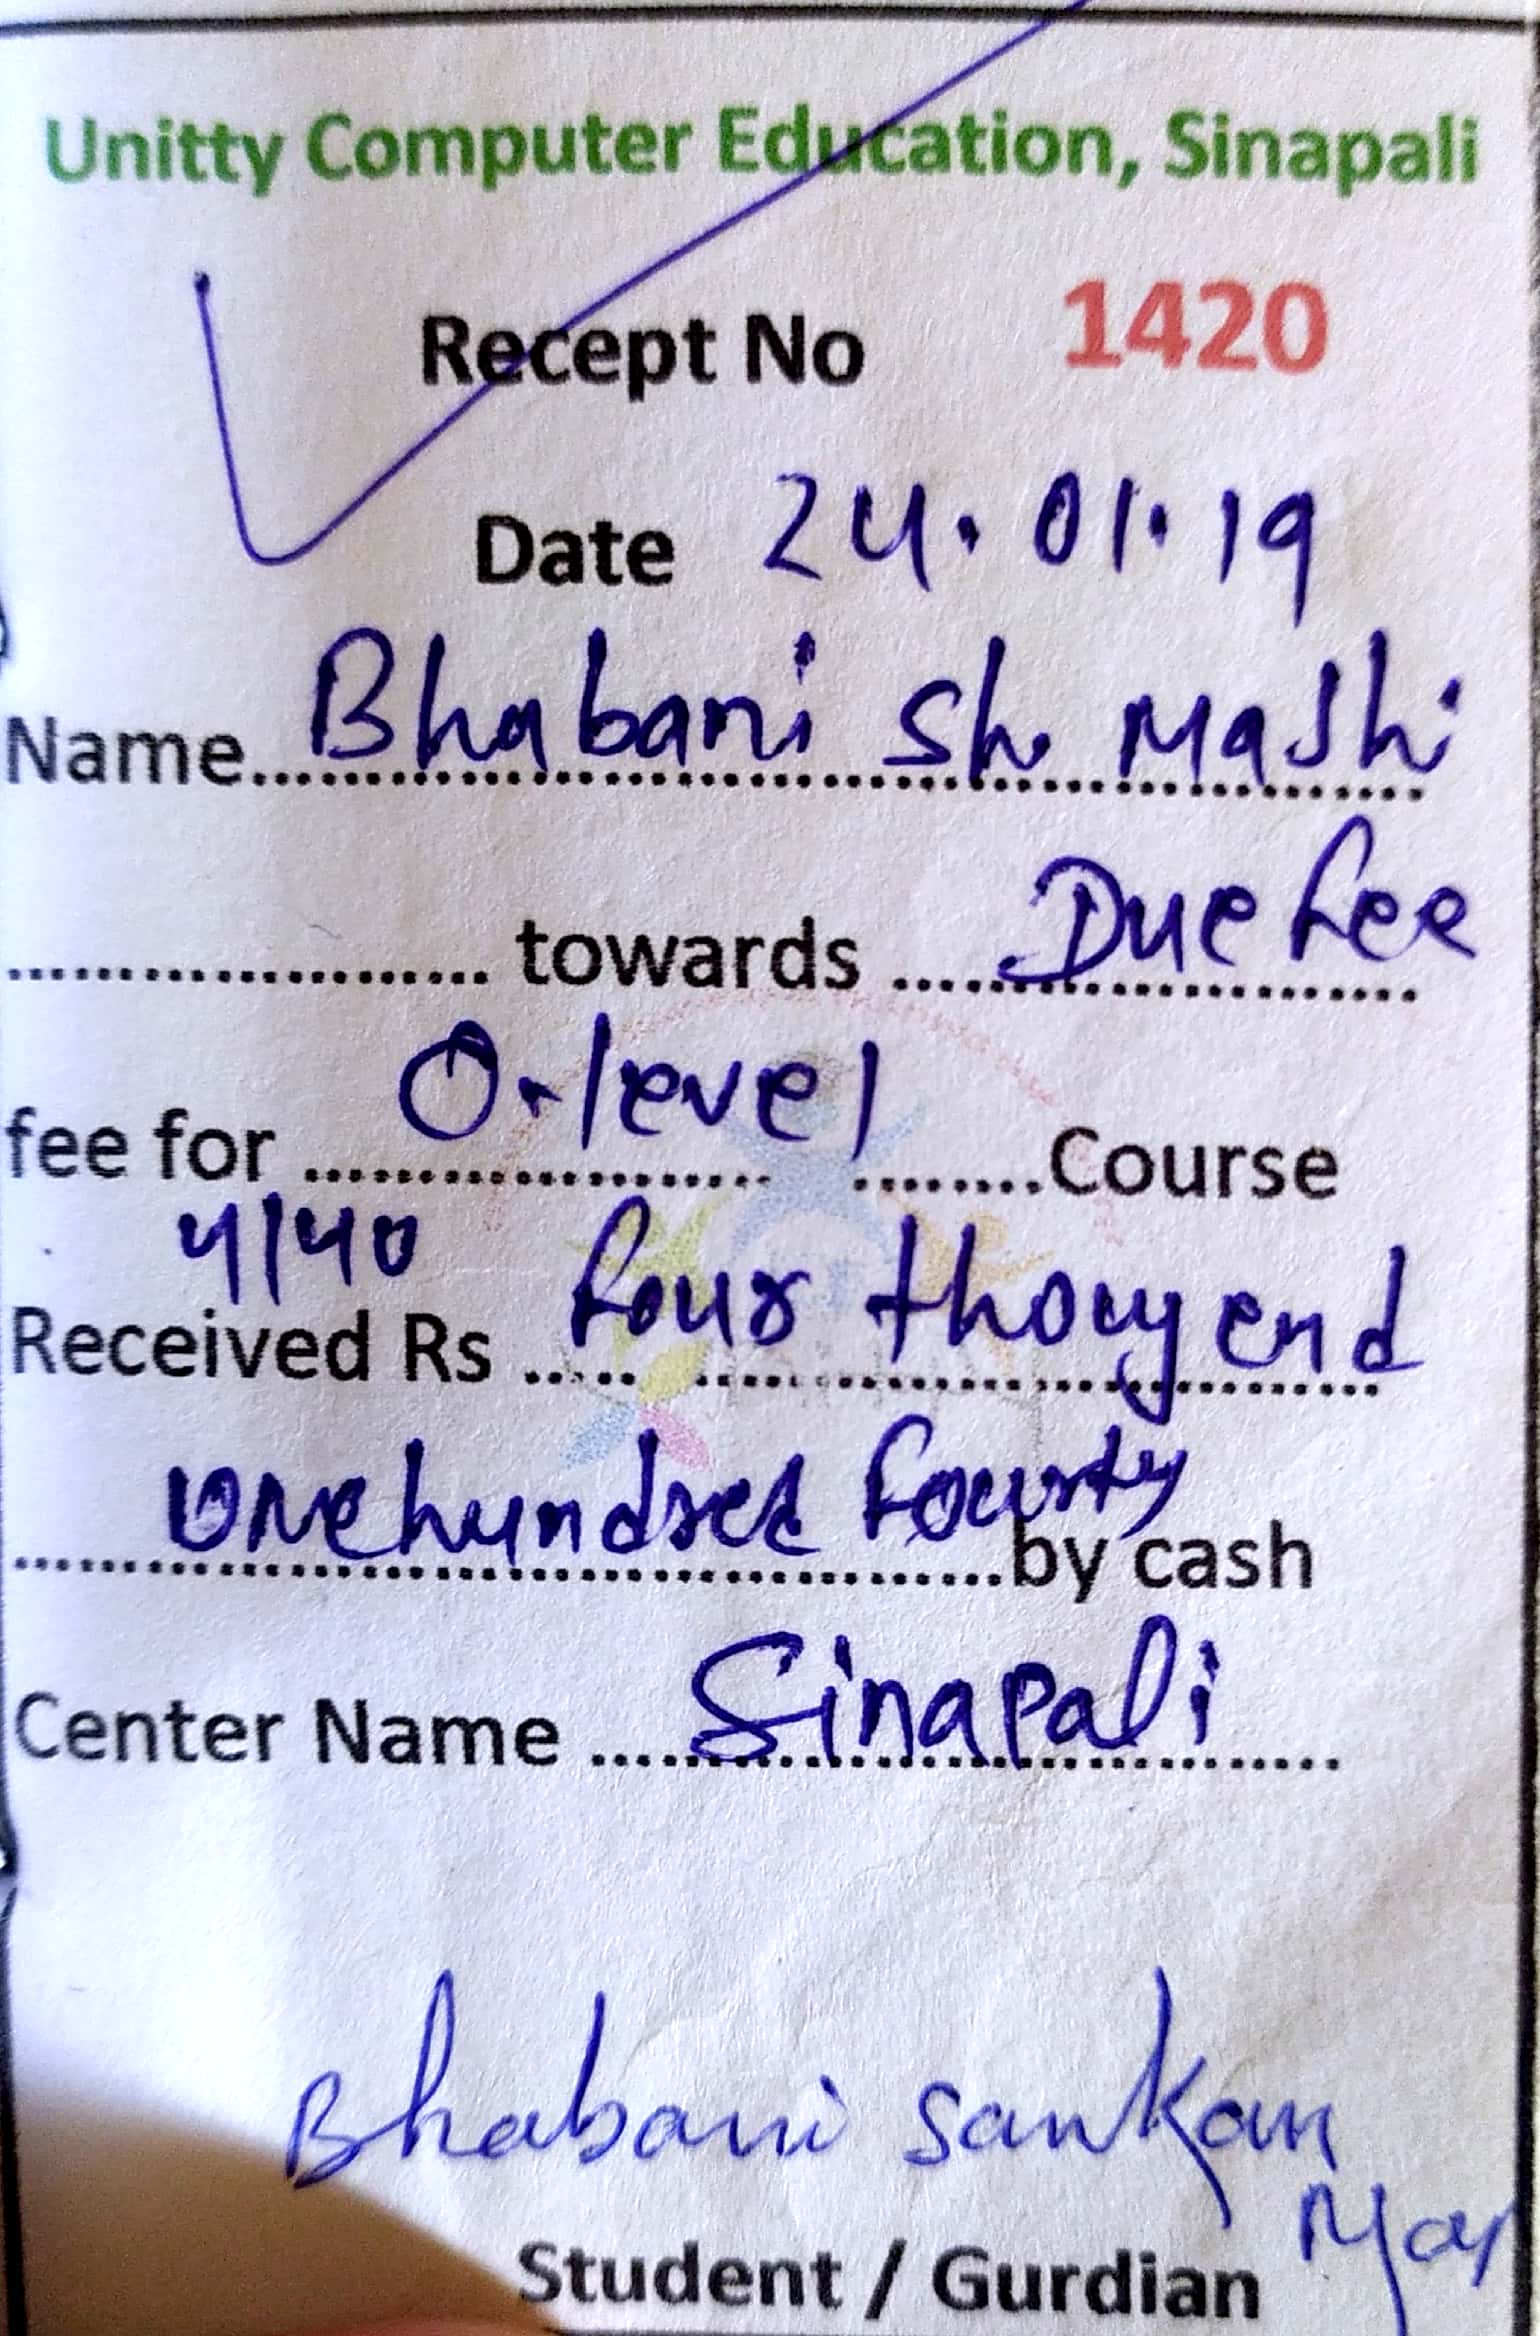 Unitty Computer Education, Sinapali
Recept No 1420
Date 24.01.19
Name Bhabani Sh. Mashi
towards Due fee
fee for O-level Course
4140
Received Rs four thousend
one hundred fourty by cash
Center Name Sinapali
Bhabani Sankar
Student / Gurdian